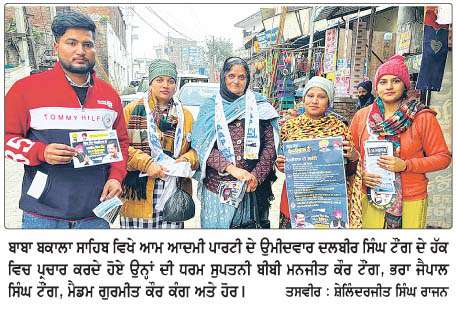 TOMMY HILFIGER
85
ਬਾਬਾ ਬਕਾਲਾ ਸਾਹਿਬ ਵਿਖੇ ਆਮ ਆਦਮੀ ਪਾਰਟੀ ਦੇ ਉਮੀਦਵਾਰ ਦਲਬੀਰ ਸਿੰਘ ਟੌਂਗ ਦੇ ਹੱਕ
ਵਿਚ ਪ੍ਰਚਾਰ ਕਰਦੇ ਹੋਏ ਉਨ੍ਹਾਂ ਦੀ ਧਰਮ ਸੁਪਤਨੀ ਬੀਬੀ ਮਨਜੀਤ ਕੌਰ ਟੌਂਗ, ਭਰਾ ਜੈਪਾਲ
ਸਿੰਘ ਟੌਂਗ, ਮੈਡਮ ਗੁਰਮੀਤ ਕੌਰ ਕੰਗ ਅਤੇ ਹੋਰ। ਤਸਵੀਰ : ਸ਼ੇਲਿੰਦਰਜੀਤ ਸਿੰਘ ਰਾਜਨ